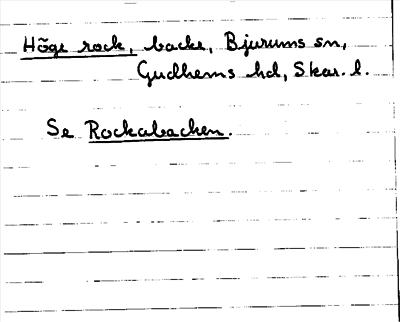 Höge rock, backe, Bjurums sn,
Gudhems hd, Skar. l.
Se Rockabacken.